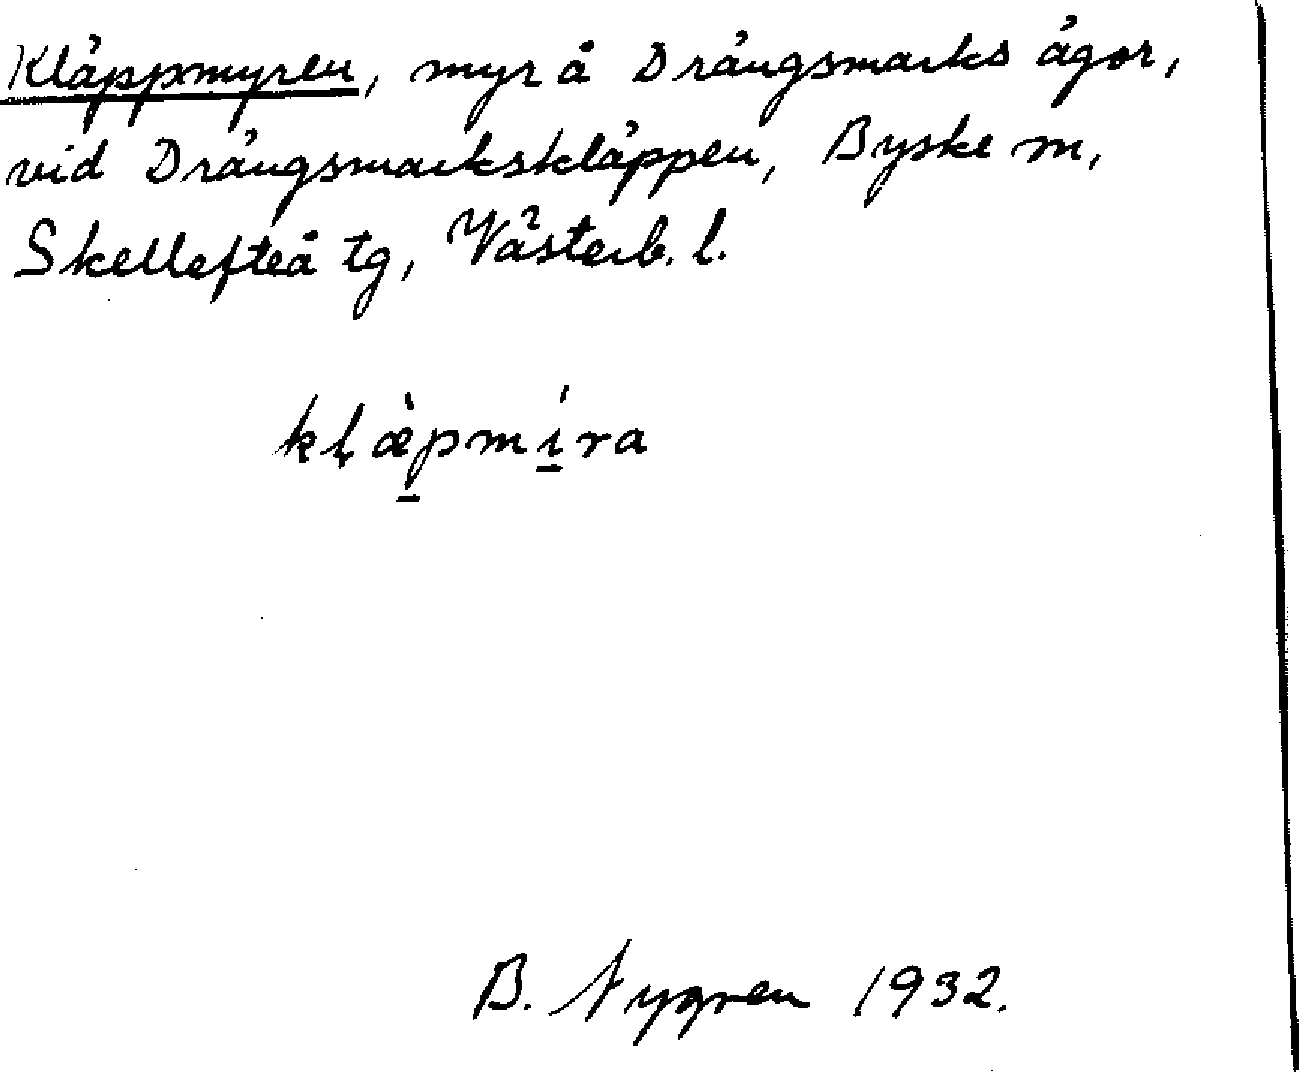 Kläppmyren, myr å Drängsmarks ägor,
vid Drängsmarkskläppen, Byske sn,
Skellefteå tg, Västerb. l.
kḷæ̀pmíra
B. Nygren 1932.